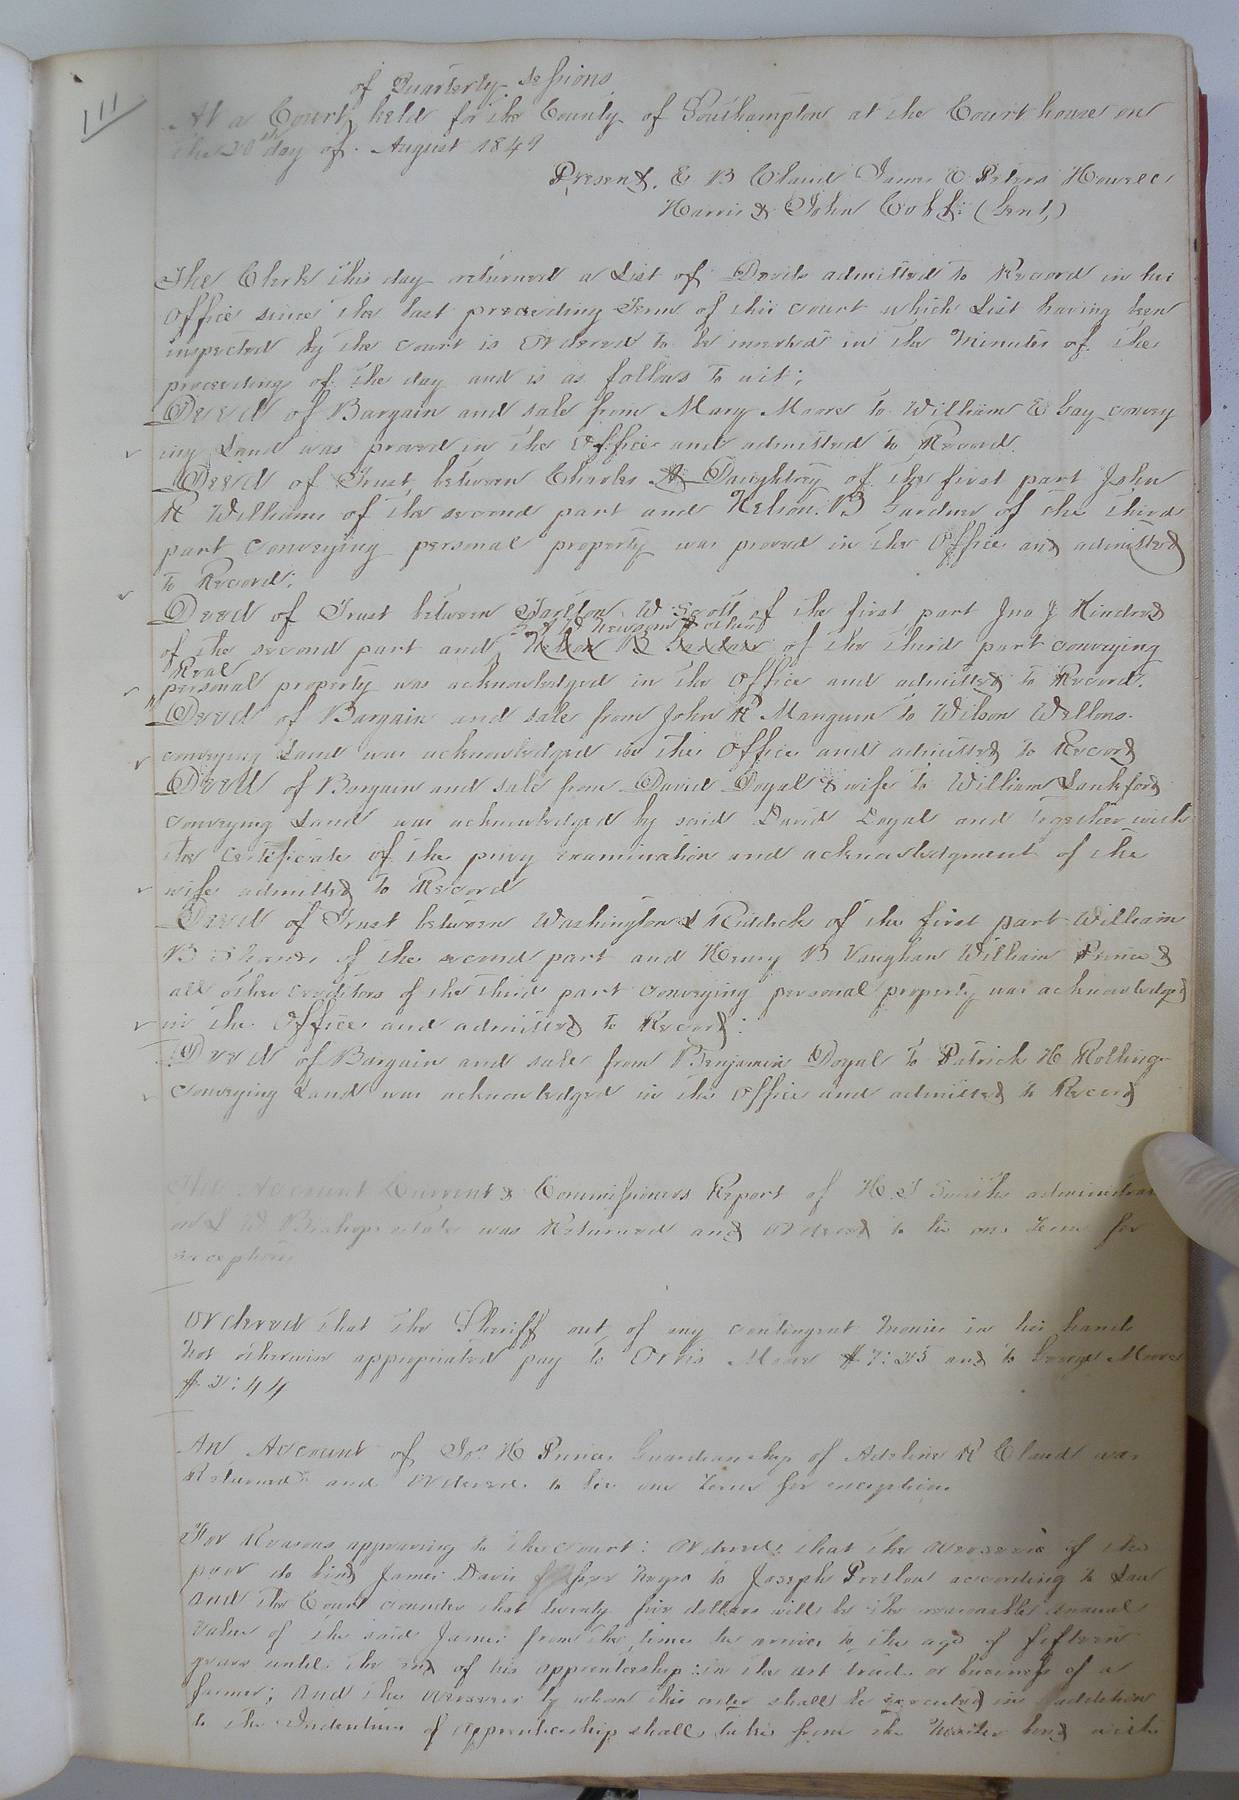 111
of Quarterly Sessions
At a Court held for the County of Southampton at the Court house on
the 20th day of August 1849
Present, E B Claud James E Peters Howell
Harris & John Cobb (Gent,)
The Clerk this day returned a List of Deeds admitted to Record in his
Office since the last preceeding Term of this court which List having been
inspected by the court is Ordered to be inserted in the Minutes of the
proceeding of the day and is as follows to wit;
Deed of Bargain and sale from Mary Moore to William E Gay convey
ing Land was proved in the Office and admitted to Record.
Deed of Trust between Charles A Daughtrey of the first part John
R Williams of the second part and Nelson B Gardner of the third
part conveying personal property was proved in the Office and admitted
to Record:
Deed of Trust between W Scott of the first part Jno J Kindred
Newsom & others
of the second part and Nelson B Gardner of the third part conveying
Real
personal property was acknowledged in the Office and admitted to Record.
Deed of Bargain and sale from John R Mangum to Wilson Wellons
conveying Land was acknowledged in the Office and admitted to Record
Deed of Bargain and sale from David Doyal & wife to William Lankford
conveying Land was acknowledged by said David Doyal and together with
the Certificate of the privy examination and acknowledgment of the
wife admitted to Record
Deed of Trust between Washington L Riddick of the first part William
B of the second part and Henry B Vaughan William Prince &
all other creditors of the third part conveying personal property was acknowledged
in the Office and admitted to Record:
Deed of Bargain and sale from Benjamin Doyal to Patrick H Rollings
conveying Land was acknowledged in the Office and admitted to Record
The Account Current & Commissioners Report of H T Smith administrator
on L W Bishops estate was Returned and Ordered to lie one Term for
exceptions
Ordered that the Sheriff out of any contingent monies in his hands
not otherwise appropriated pay to Orris Moore $7:35 and to George Moore
$2:44
An Account of Jos H Prince Guardianship of Adeline R Claud was
Returned and Ordered to lie one Term for exceptions
For Reasons appearing to the court: Ordered that the overseers of the
poor do bind James Davis free Negro to Joseph Pretlow according to Law
And the Court consider that twenty five dollars will be the reasonable annual
value of the said James from the time he arrives to the age of fifteen
years until the end of his apprentership: in the art trade or business of a
farmer; And the overseers by whom this order shall be executed in addition
to the Indenture of apprenticeship shall take from the Master bond with